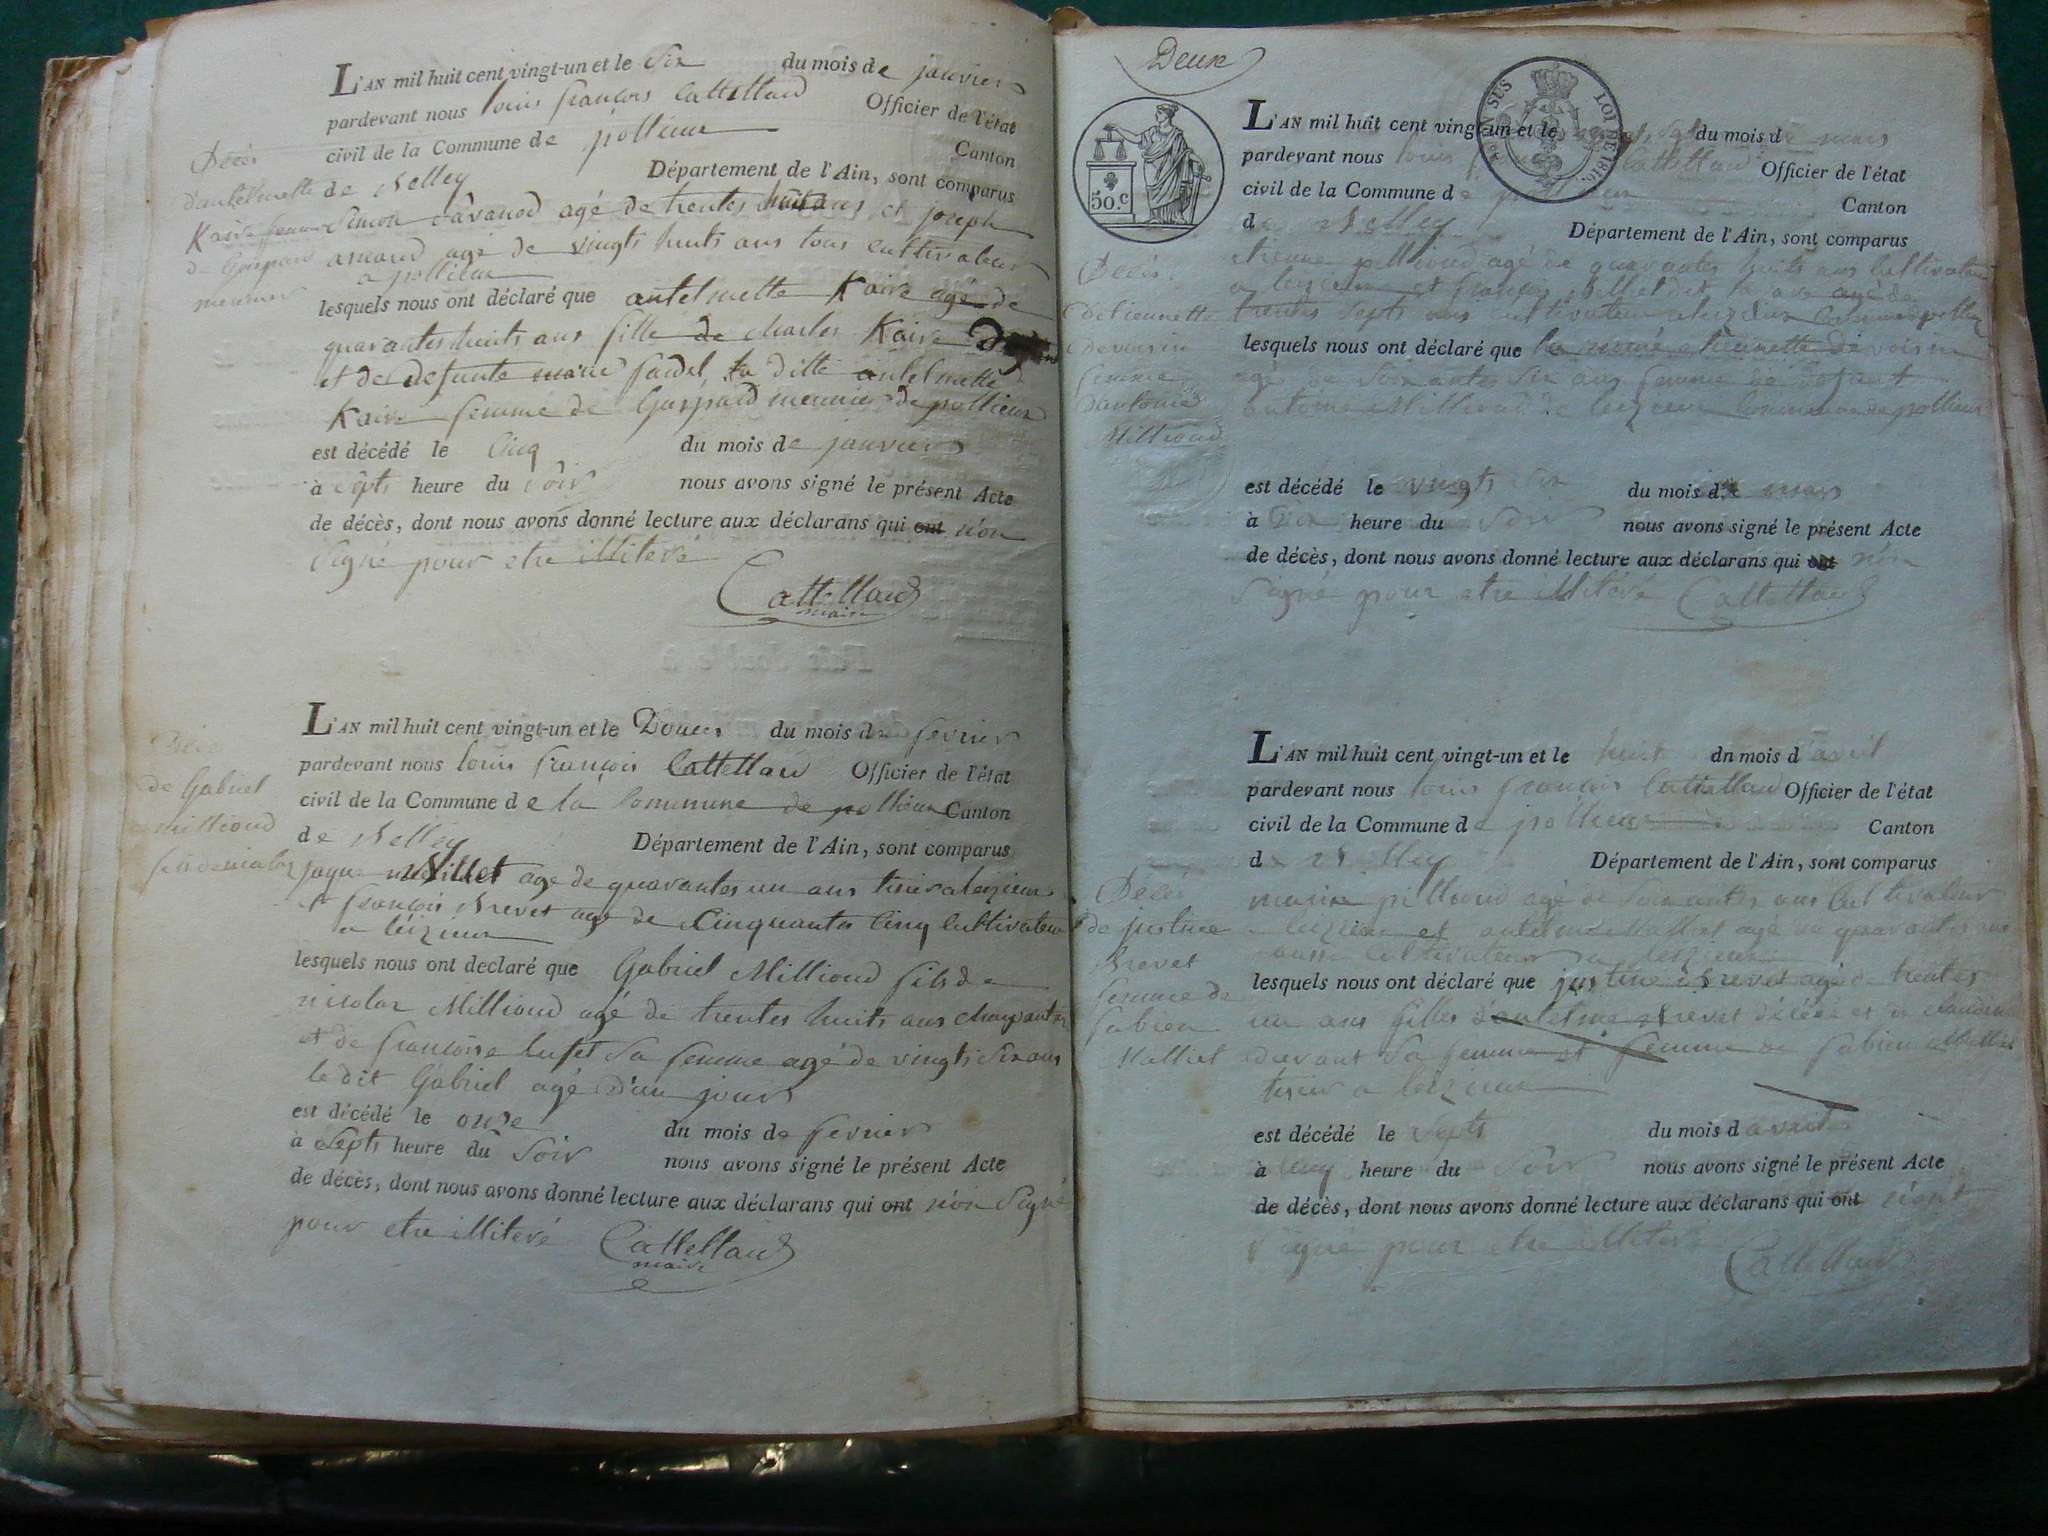 L'AN mil huit cent vingt-un et le Six du mois de janvier
pardevant nous louis françois Cattelland Officier de l'état
civil de la Commune de pollieux Canton
de Belley Département de l'Ain, sont comparus
Simon Savanod agé de trentes huit ans et joseph
arnaud agé de vingts huits ans tous cultivateur
a pollieu
lesquels nous ont déclaré que antelmette Kaire agé de
quarantes huits ans fille de charles Kaire
et de defunte marie jardel, la ditte antelmette
Kaire femme de Gaspard meunier de pollieux
est décédé le Cinq du mois de janvier
à Septs heure du Soir nous avons signé le présent Acte
de décès, dont nous avons donné lecture aux déclarans qui ont n'on
Signé pour etre illiteré
Cattelland
maire
Décés
d'antelmette
Kaire femme
de Gaspard
meunier
L'AN mil huit cent vingt-un et le Douze du mois de fevrier
pardevant nous louis françois Cattelland Officier de l'état
civil de la Commune de la Commune de pollieux Canton
de Belley Département de l'Ain, sont comparus
jaque Millet agé de quarantes un ans a leizieux
et françois Brevet age de Cinquantes Cinq Cultivateur
a leizieux
lesquels nous ont declaré que Gabriel Millioud fils de
nicolas Millioud agé de trentes huits ans charpantier
et de françoise Sa femme agé de vingts Six ans
le dit Gabriel agé D'un jours
est décédé le onze du mois de fevrier
à Septs heure du Soir nous avons signé le présent Acte
de décès, dont nous avons donné lecture aux déclarans qui ont n'on Signé
pour etre illiteré
Cattelland
maire
de Gabriel
millioud
fils de nicolas
Deux
50.c
LOI DE 1816.
L'AN mil huit cent vingt-un et le vingt Sept du mois de mars
pardevant nous louis Cattelland Officier de l'état
civil de la Commune de Canton
de Belley Département de l'Ain, sont comparus
etienne pillioud agé de quarantes huits ans Cultivateur
a leizieux et françois Billiet dit agé de
trentes Septs ans cultivateur a leizieux Commune de pollieux
lesquels nous ont déclaré que la etiennette Devoisin
agé de Soixantes Six ans femme de defunt
antoine Millioud de leizieux Commune de pollieux
est décédé le vingts Six du mois de mars
à heure du Soir nous avons signé le présent Acte
de décès, dont nous avons donné lecture aux déclarans qui ont n'on
Signé pour etre illiteré Cattelland
Décés
d'etiennette
Devoisin
femme
d'antoine
Millioud
L'AN mil huit cent vingt-un et le huit dn mois d'avril
pardevant nous louis françois Cattelland Officier de l'état
civil de la Commune de pollieux Canton
de Belley Département de l'Ain, sont comparus
pillioud agé de Soixantes ans Cultivateur
a leizieux et antelme Malliet agé de quarantes
aussi Cultivateur a leizieux
lesquels nous ont déclaré que justine Brevet agé de trentes
un ans filles d'antelme Brevet décédé et de claudine
Sa femme et femme de fabien Malliet
a leizieux
est décédé le Septs du mois d'avril
à Cinq heure du Soir nous avons signé le présent Acte
de décès, dont nous avons donné lecture aux déclarans qui ont n'ont
Signé pour etre illiteré
Cattelland
Décés
de justine
Brevet
femme de
fabien
Malliet